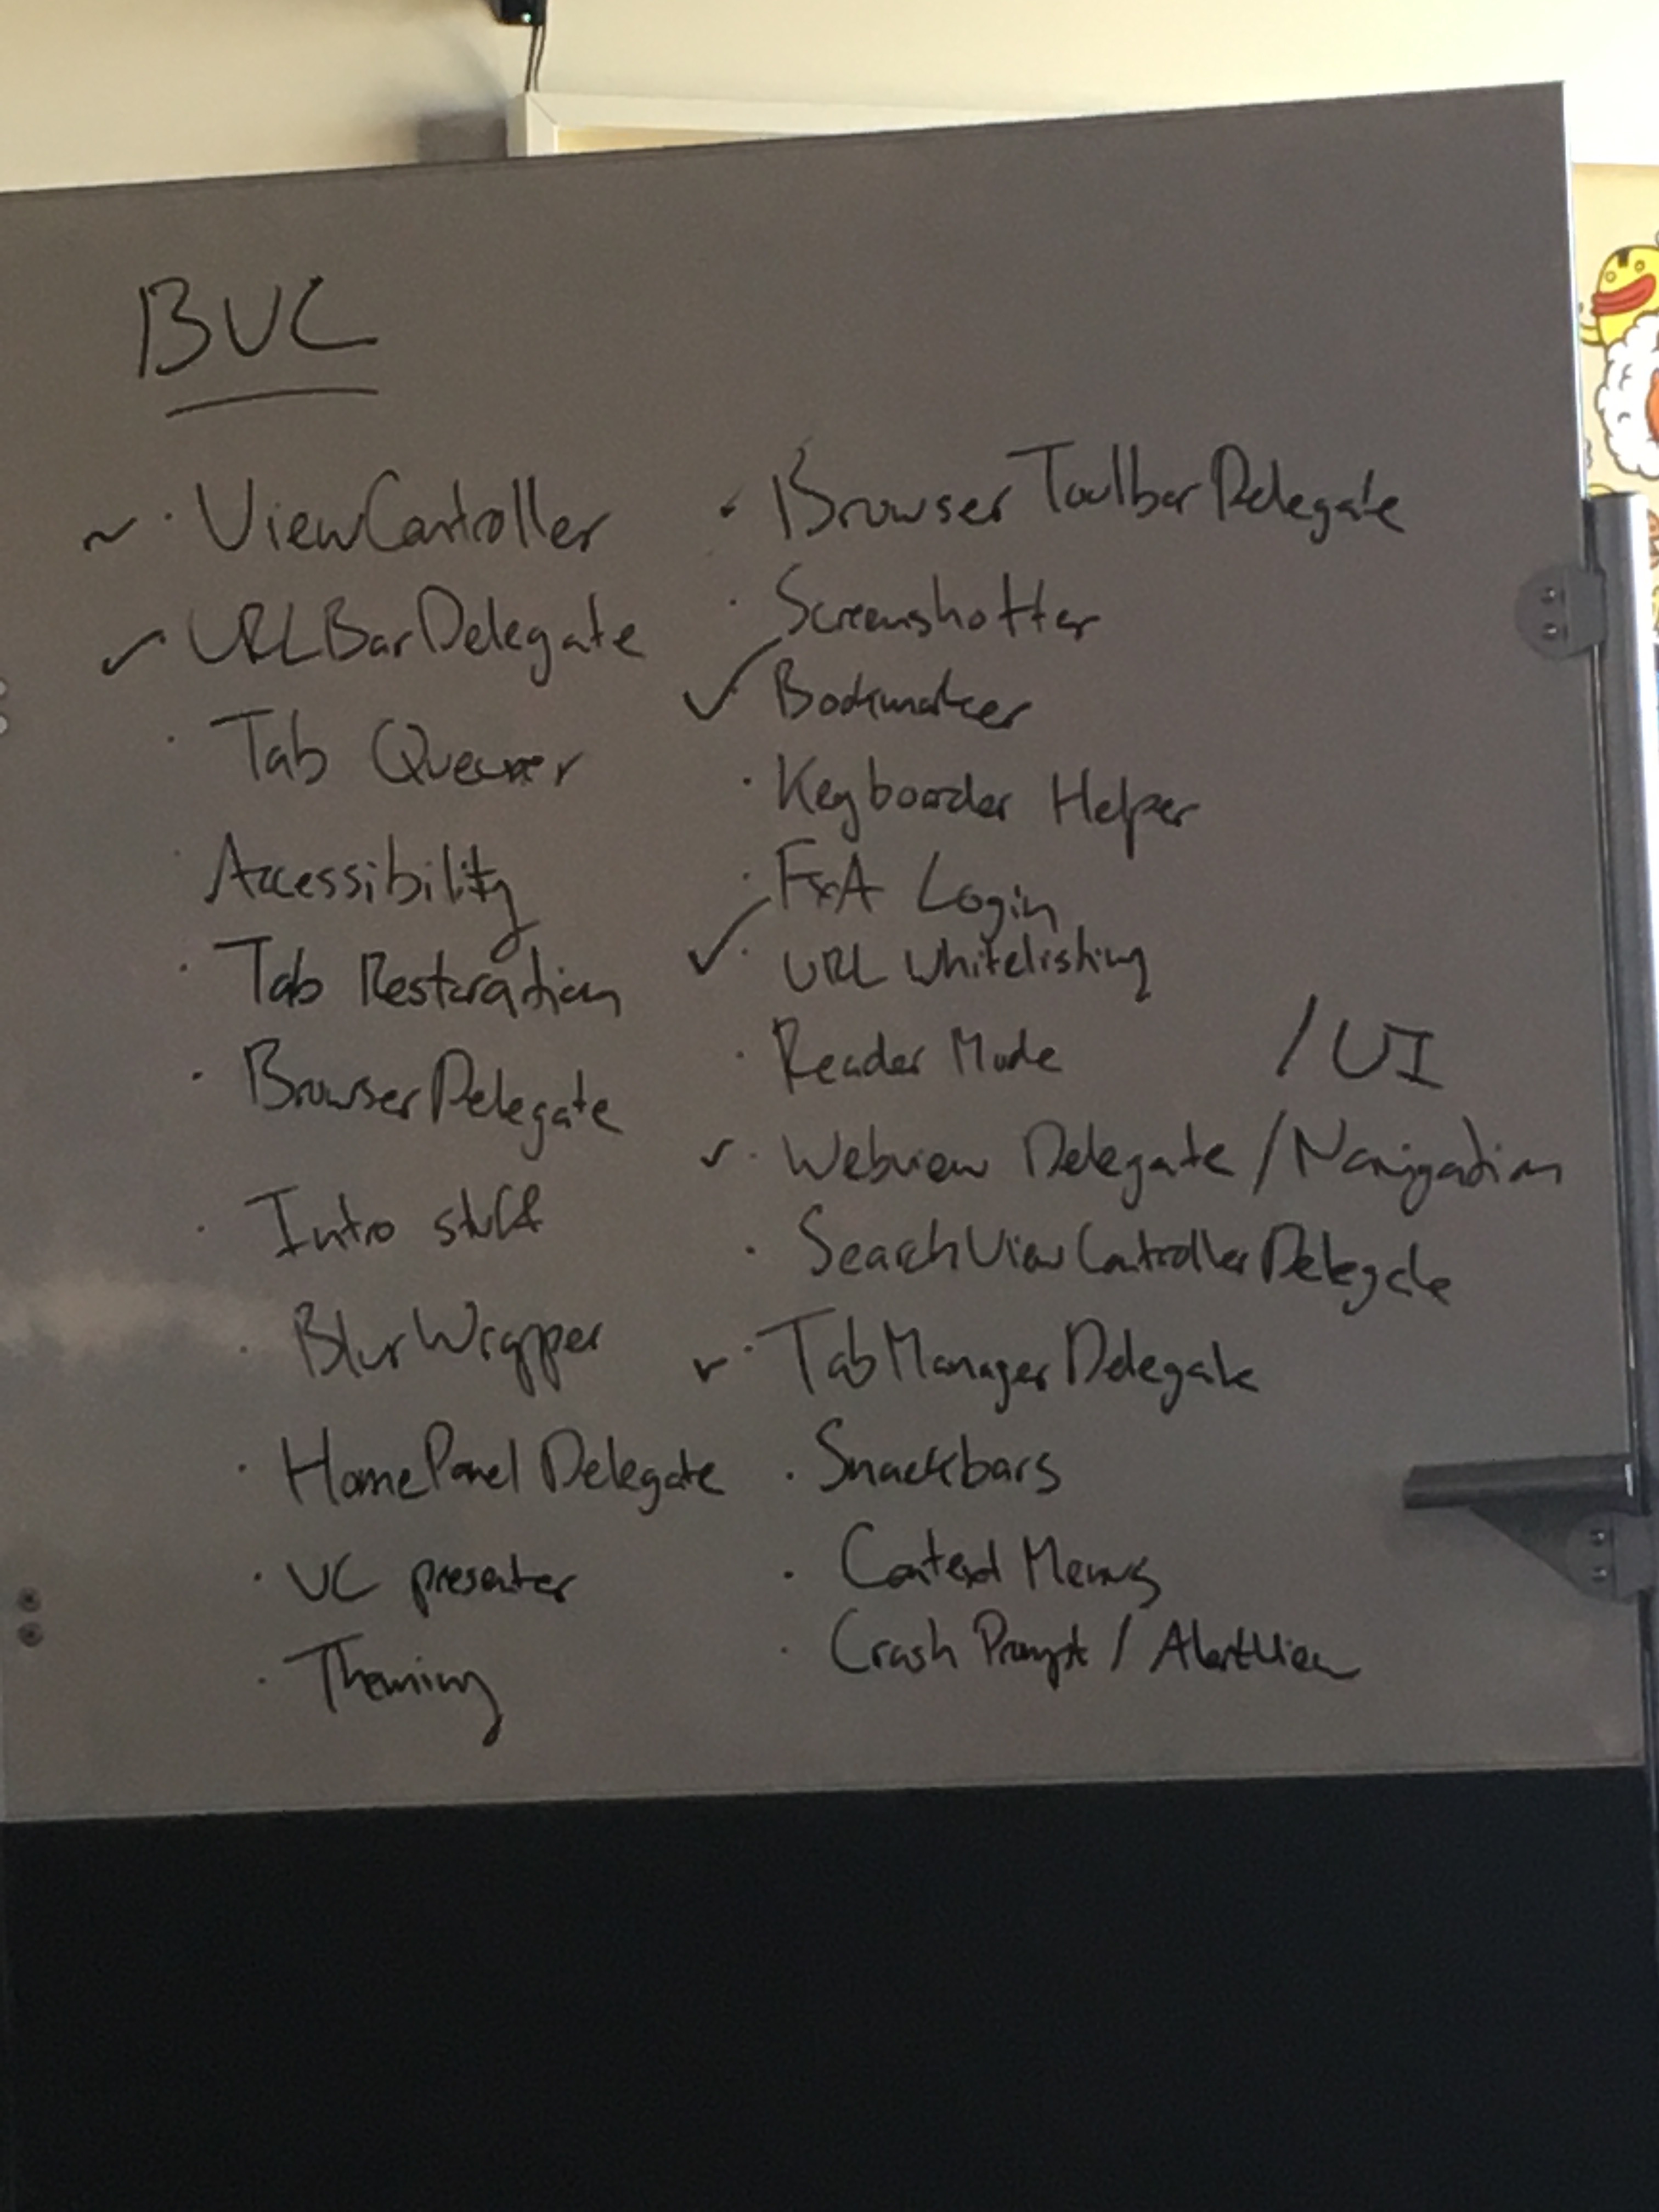 BVC
~ · ViewController
✓ URLBarDelegate
· Tab Queuer
· Accessibility
· Tab Restoration
· BrowserDelegate
· Intro stuff
· BlurWrapper
· HomePanelDelegate
· VC presenter
· Theming
✓ BrowserToolbarDelegate
· Screenshotter
✓ Bookmarker
· Keyboarder Helper
· FxA Login
✓ · URL Whitelisting
· Reader Mode /UI
✓ · Webview Delegate / Navigation
· SearchViewControllerDelegate
✓ · TabManagerDelegate
· Snackbars
· Context Menus
· Crash Prompt / AlertView